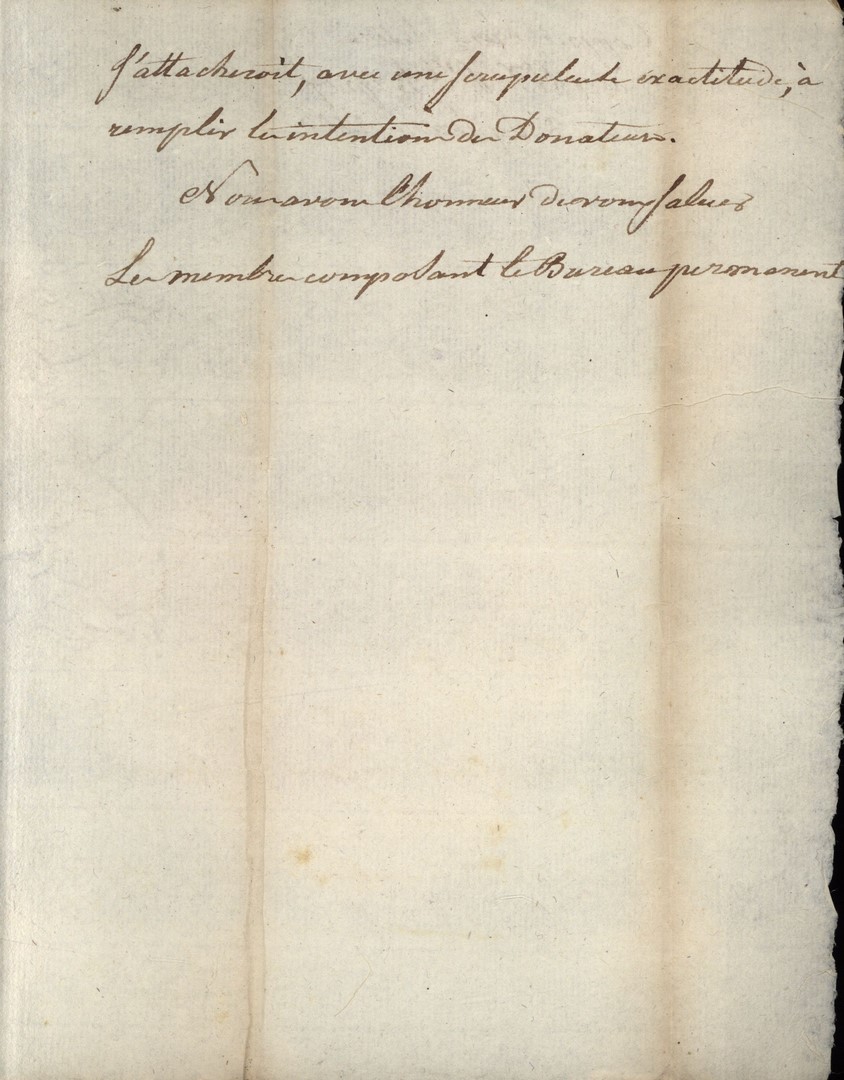 s'attacheroit, avec une scrupuleuse exactitude, à
remplir les intentions des Donateurs.
Nous avons l'honneur de vous saluer
Les membres composant le Bureau permanent